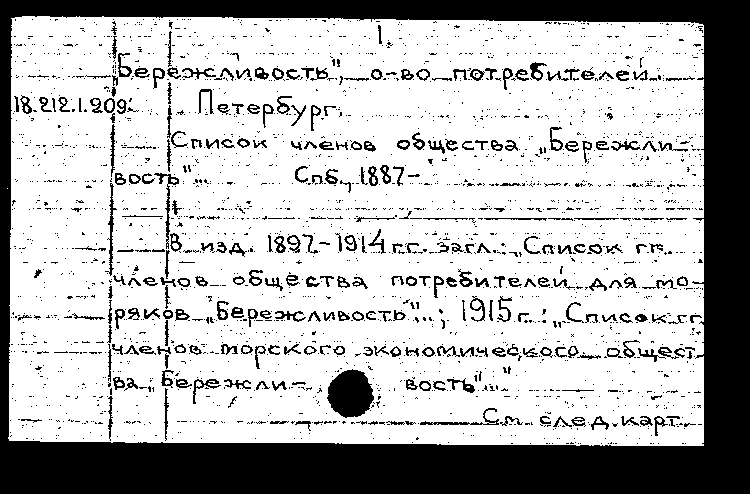 1.
„Бережливость", о-во потребителей.
18.212.1.209. Петербург.
Список членов общества „Бережли-
вость"... Спб., 1887-
В изд. 1897-1914 гг. загл.: „Список гг.
членов общества потребителей для мо-
ряков „Бережливость"..."; 1915 г.: „Список гг.
членов морского экономического общест-
ва „Бережли- вость"..."
См. след. карт.